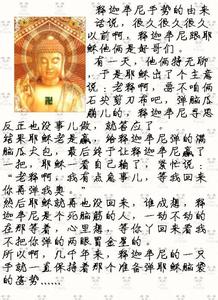 释迦牟尼手势的由来
话说，很久很久很久
以前啊，释迦牟尼跟耶
稣他俩是好哥们。
有一天，他俩特无聊
，于是耶稣出了个主意
说：老释啊，要不咱俩
石头剪刀布吧，弹脑瓜
崩儿的，释迦牟尼寻思
反正也没事儿做，就答应了。
结果耶稣老是赢，给释迦牟尼弹的满
脑瓜大包，最后终于让释迦牟尼赢了
一把，耶稣一看自己输了，发慌说：
“老释啊，我有点事儿，等我回来
你再弹我奥。”
然后耶稣就再也没回来，谁成想，释
迦牟尼是个死脑筋的人，一动不动的
在那等着，心里想，等你丫回来看我
不把你弹的两眼冒金星的。
所以啊，几千年来，释迦牟尼的一只
手就一直保持着那个准备弹耶稣脑袋
的姿势……